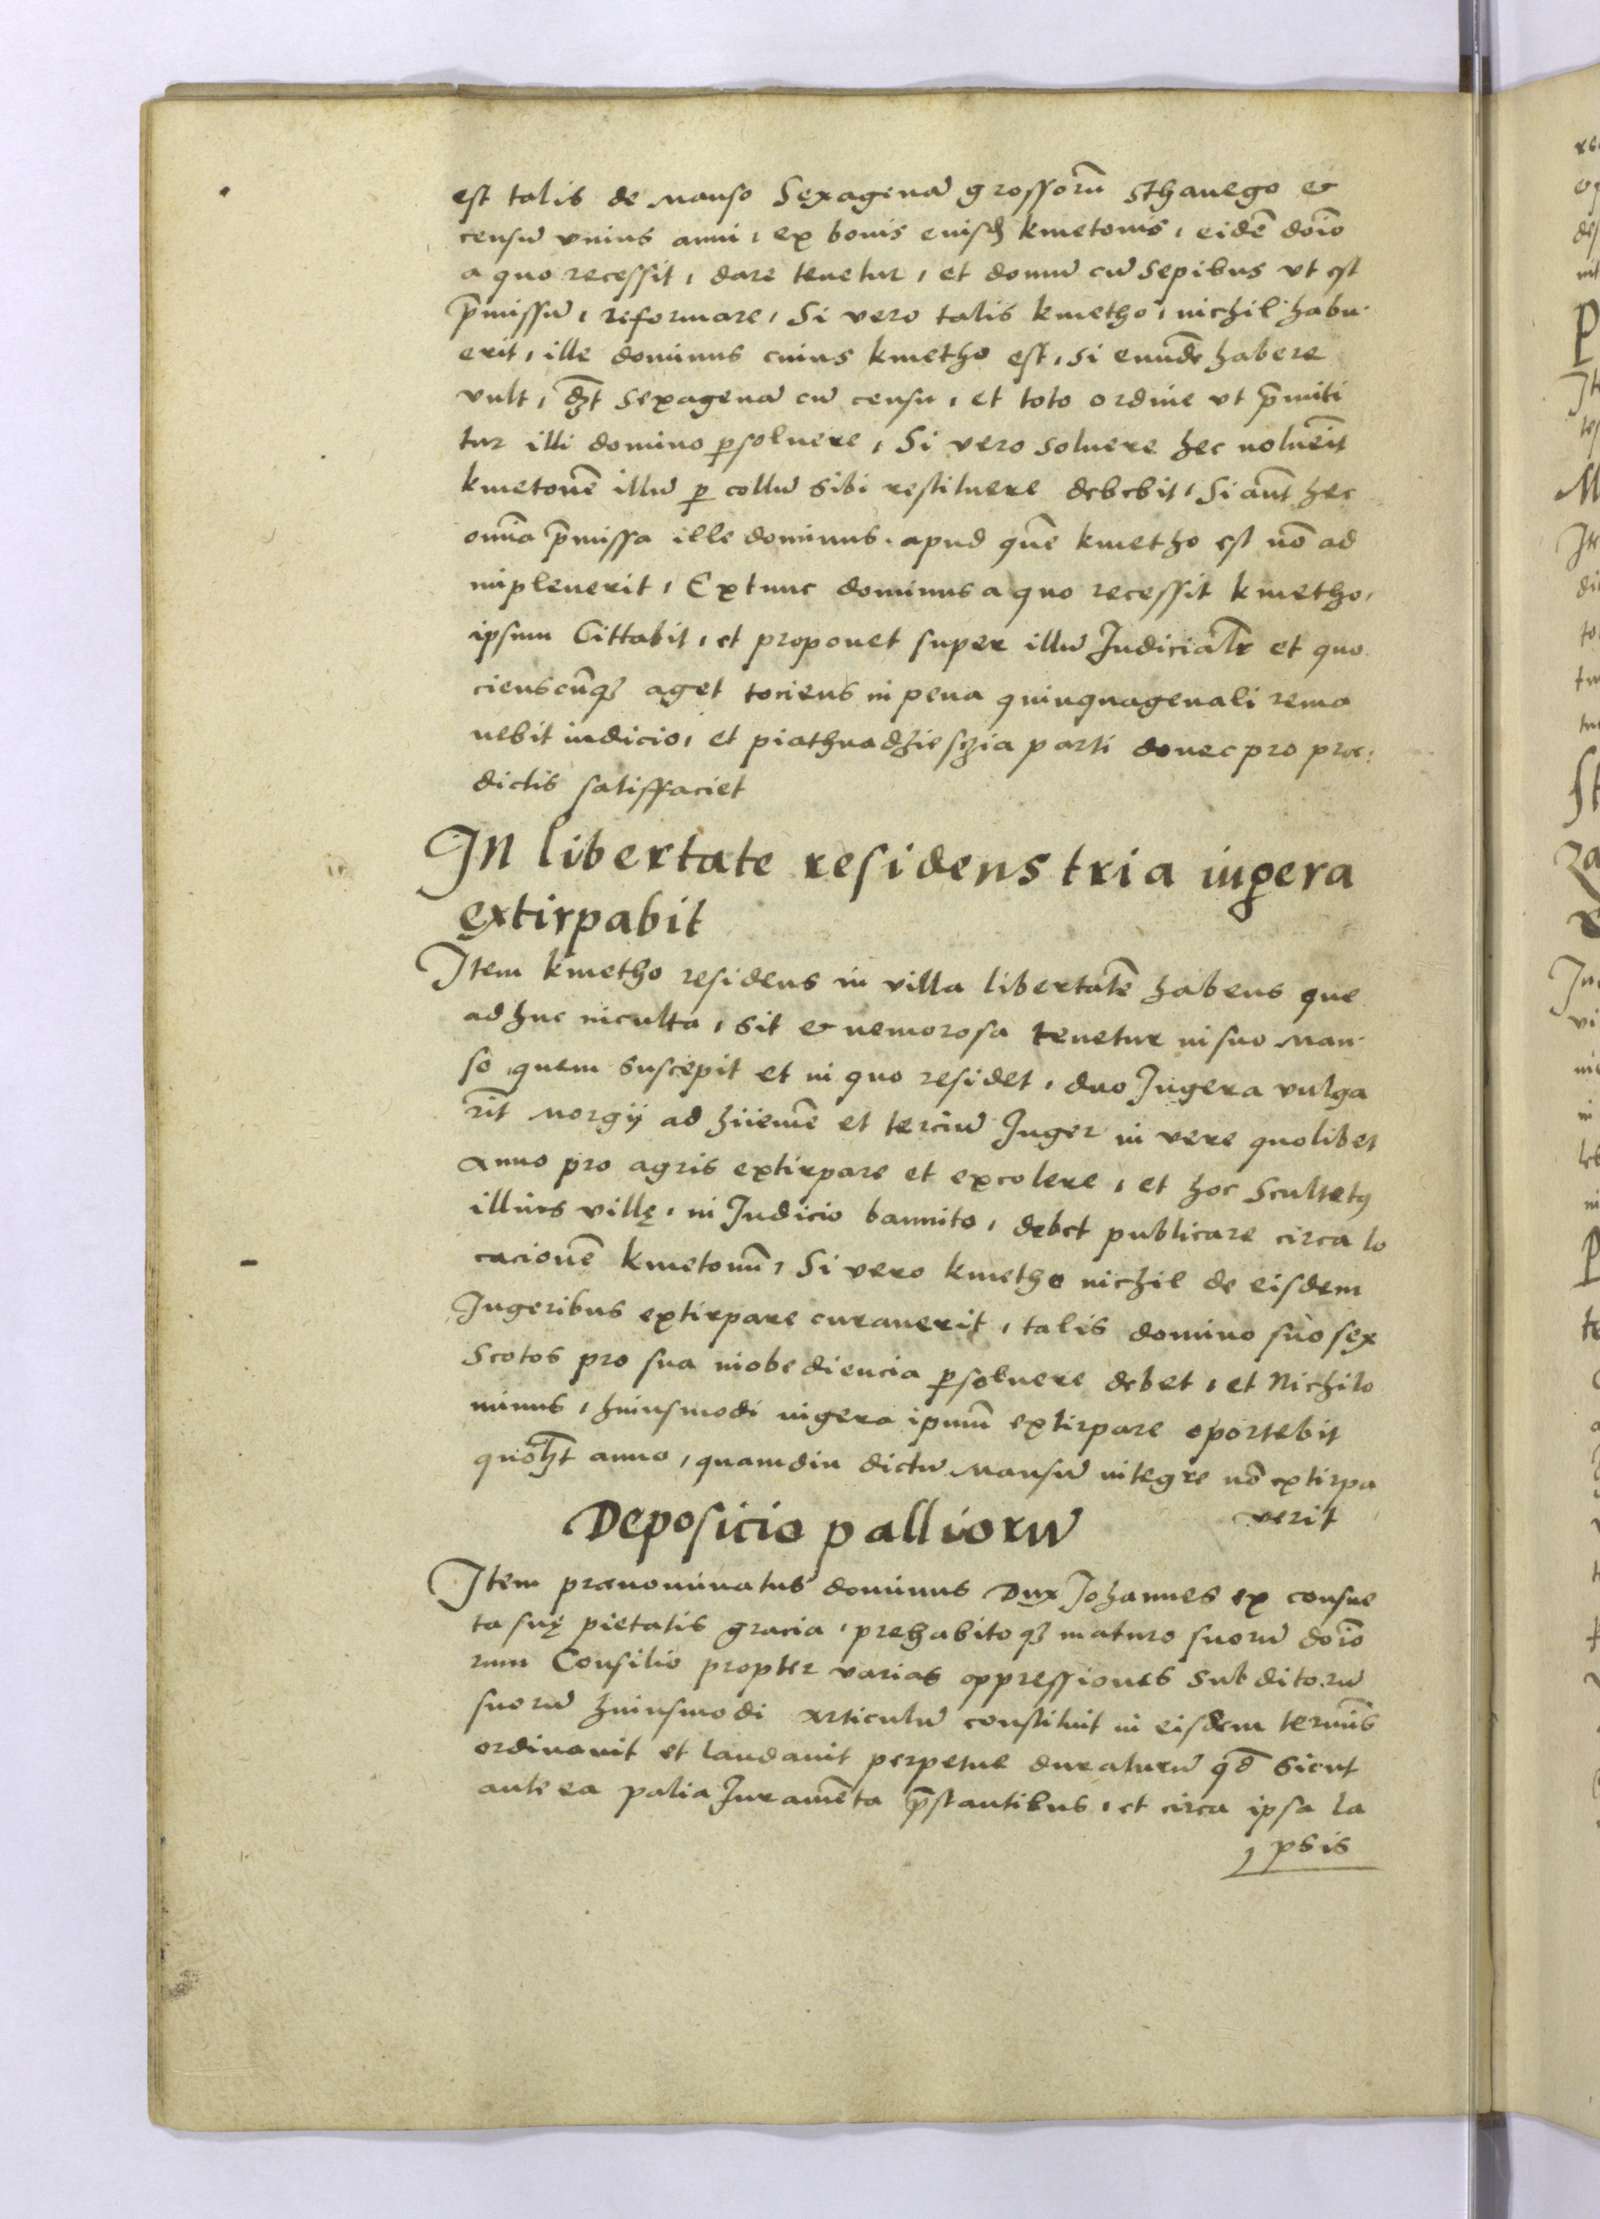 est talis de manso Sexagenā grossorū Sthanego &
censū vnius anni, ex bonis eiusdē kmetonis, eidē doīo
a quo recessit, dare tenetur, et domū cū Sepibus vt est
p̄missū, reformare, Si vero talis kmetho, nichil habu-
erit, ille dominus cuius kmetho est, si eundē habere
vult, dȝt Sexagenā cū censu, et toto ordine vt p̄miti
tur illi domino ꝑsoluere, Si vero soluere hec noluēit
kmetonē illū ꝑ collū sibi restituere debebit, Si aūt hec
om̄ia p̄missa ille dominus, apud quē kmetho est nō ad
impleuerit, Extunc dominus a quo recessit kmetho,
ipsum Cittabit, et proponet super illū Judicialr̄ et quo
cienscūqȝ aget tociens in pena quinquagenali remo
uebit iudicio, et piathnadzieszia parti donec pro prae
dictis satisfaciet
IN libertate residens tria iugera
extirpabit
Item kmetho residens in villa libertatē habens que
adhuc inculta, sit & nemorosa tenetur in suo man-
so, quem suscepit et in quo residet, duo Jugera vulga
rit̄ morgij ad hiiemē et terciū Juger in vere quolibet
Anno pro agris extirpare et excolere, et hoc Scultetꝰ
illius villę, in Judicio bannito, debet publicare circa lo
cacionē kmetonū, Si vero kmetho nichil de eisdem
Jugeribus extirpare curauerit, talis domino suo sex
Scotos pro sua inobediencia ꝑsoluere debet, et Nichilo
minus, huiusmodi iugera ipsum̄ extirpare oportebit
quolȝt anno, quamdiu dictū mansū integre nō extirpa
verit
Deposicio palliorū
Item praenominatus dominus Dux Johannes ex consue
ta suę pietatis gracia, prehabitoqȝ maturo suorū doīo
rum Consilio propter varias oppressiones Subditorū
suorū huiusmodi Articulū constituit in eisdem termīs
ordinauit et laudauit perpetue duraturū qđ sicut
antea palia Juramēta p̄stantibus, et circa ipsa la
psis